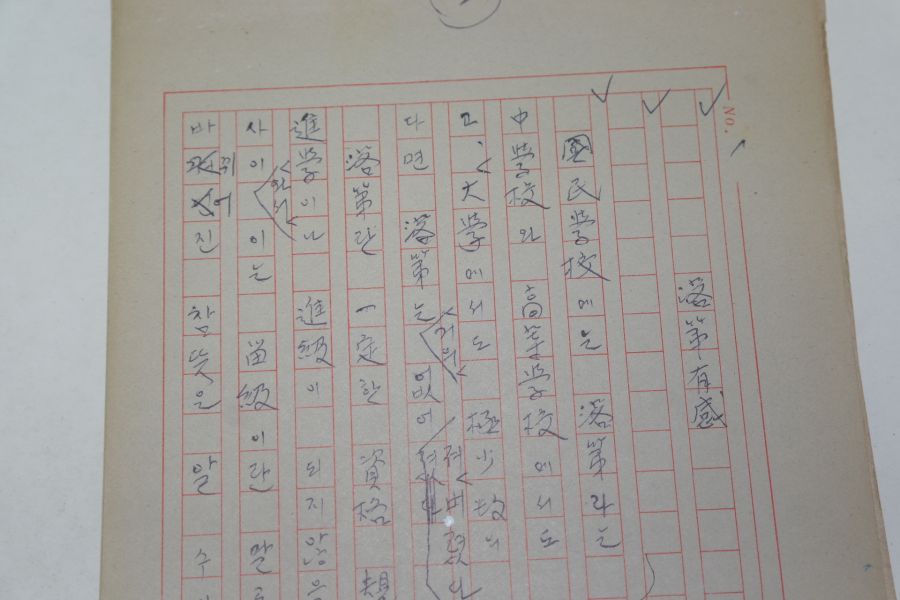 No.
落第有感
國民學校에는 落第라는
中學校와 高等學校에서도
그, 大學에서도 極少数의
다면 落第는 거의 없어
落第란 一定한 資格
進學이나 進級이 되지 않을
사이 이는 留級이란 말
바뀌어진 참뜻은 알 수